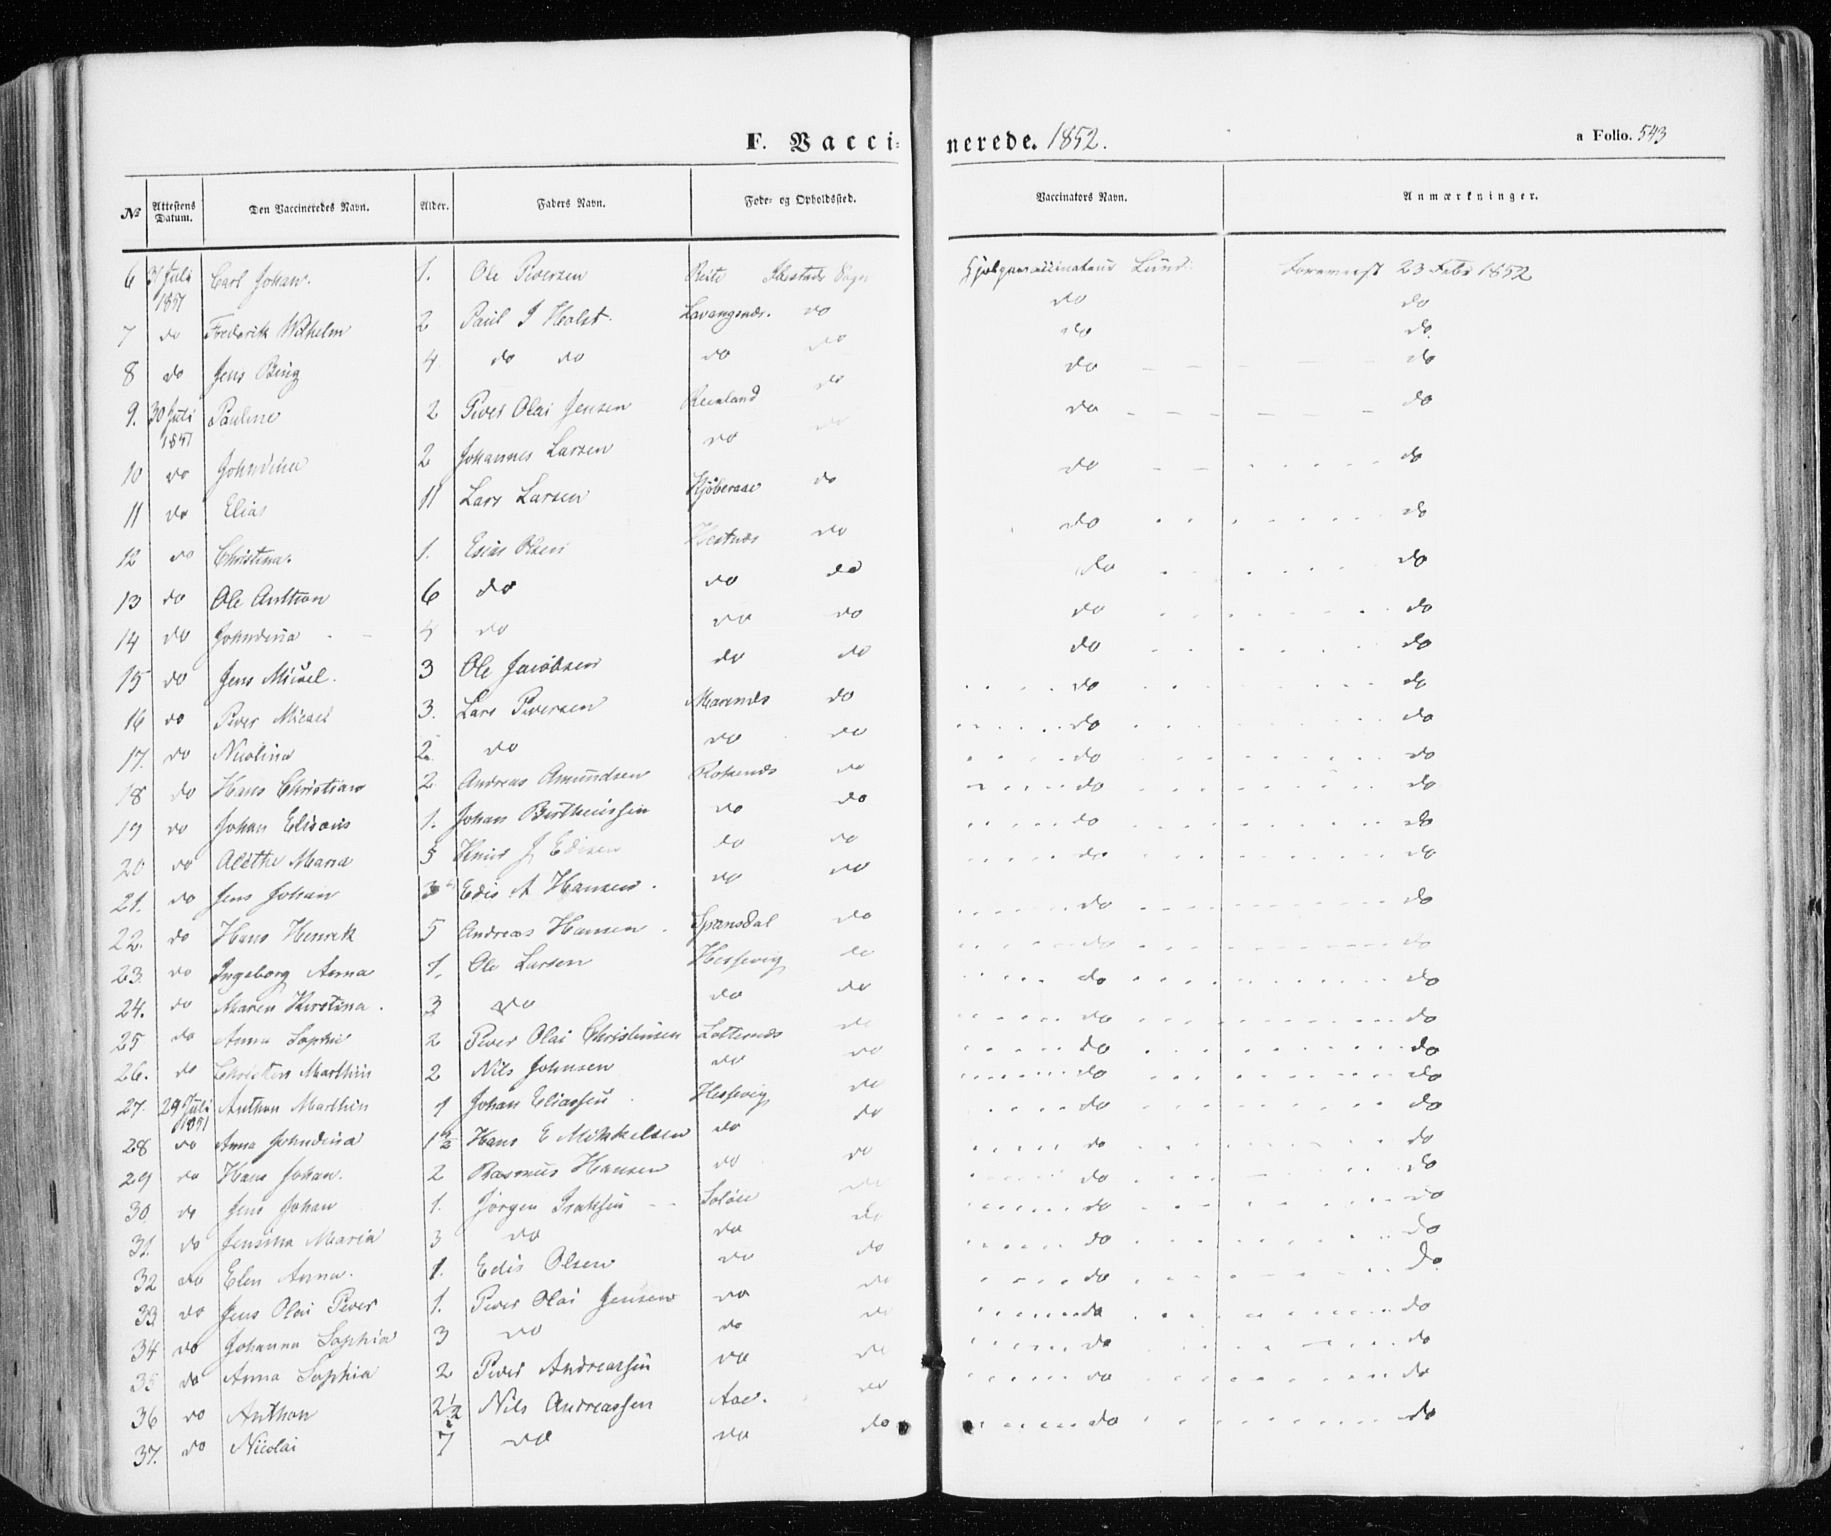 F. Vaccinerede. 1852. a Folio. 543
No Attestens Datum. Den Vaccineredes Navn. Alder. Faders Navn. Føde- og Opholdssted. Vaccinators Navn. Anmærkninger.
6 31 Juli 1851 Carl Johan. 1. Ole Pedersen Ibestads Sogn Lund 23 Febr 1852
7 do Frederik Wilhelm 2 Paul J Holst. Lavangsnæs. do do do
8 do Jens Bing 4 do do do do do do
9. 30 Juli 1851 Pauline 2 Peder Olai Jensen do do do
10 do Johndina 2 Johannes Larsen do do do do
11 do Elias 11 Lars Larsen do do do
12 do Christina. 1. Esias Olsen Hestnæs do do do
13 do Ole Anthon 6 do do do do do
14 do Johndina 4 do do do do do
15 do Jens Mikael. 3 Ole Jacobsen do do do do
16 do Peder Micael 3. Lars Pedersen do do do
17. do Nicolina 2. do do do do do
18 do Hans Christian 2 Andreas Amundsen do do do
19 do Johan Elisæus 1. Johan Bertheussen do do do do
20 do Alethe Maria 5 Knud J Edisen do do do do
21. do Jens Johan 3 Edis A Hansen. do do do do
22. do Hans Henrik 5 Andreas Hansen. Spansdal do do do
23. do Ingeborg Anna 1. Ole Larsen Hessevig do do do
24. do Maren Kirstina. 3 do do do do do
25 do Anna Sophie 2 Peder Olai Christensen do do do
26. do Christen Marthin 2 Nils Johnsen do do do do
27. 29 Juli 1851 Anthon Marthin 1 Johan Eliassen Hessevig do do do
28 do Anna Johndina 1½ Hans E Mikkelsen do do do do
29 do Hans Johan. 2 Rasmus Hansen do do do do
30 do Jens Johan 1. Jørgen Isaksen Soløie do do do
31. do Jensina Maria 3 do do do do do
32 do Elen Anna. 1. Edis Olsen do do do do
33 do Jens Olai Peder 1. Peder Olai Jensen do do do do
34 do Johanna Sophia 3 do do do do do
35 do Anna Sophia 2 Peder Andreassen do do do do
36 do Anthon 2½ Nils Andreassen Aae. do do do
37. do Nicolai 7 do do do do do